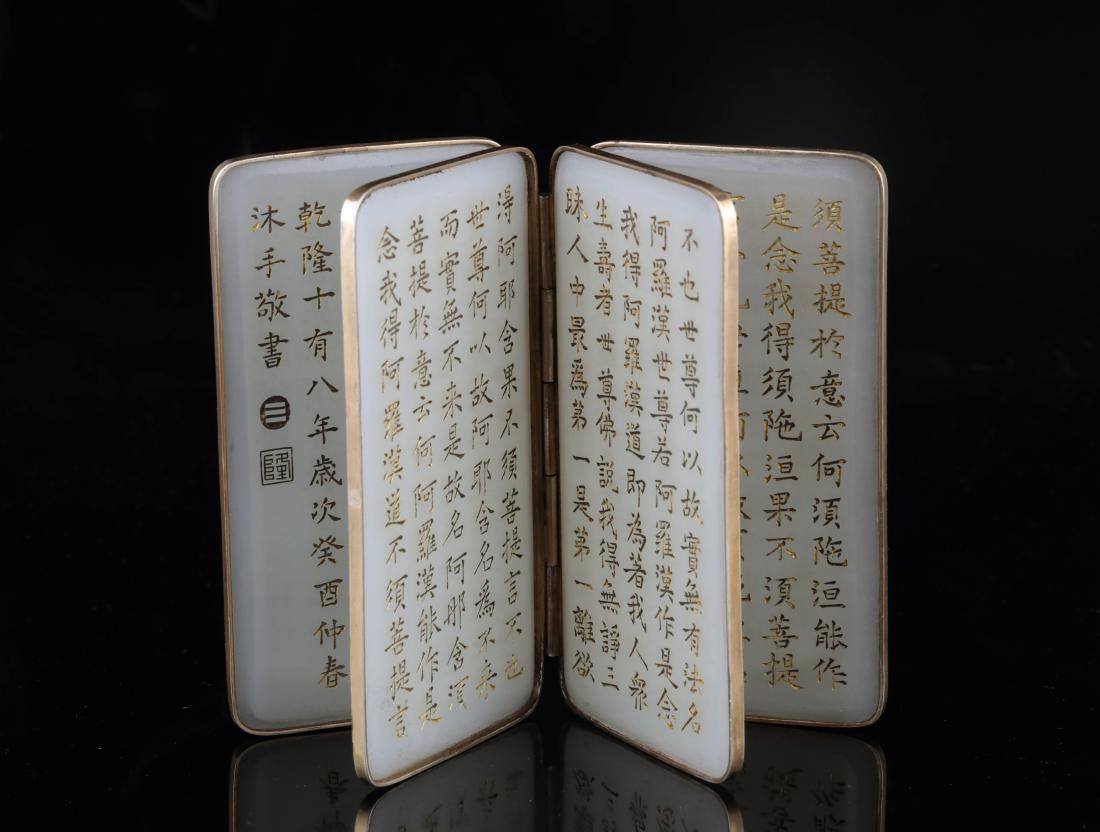 須菩提於意云何須陁洹能作
是念我得須陁洹果不須菩提
不也世尊何以故實無有法名
阿羅漢世尊若阿羅漢作是念
我得阿羅漢道即為著我人衆
生壽者世尊佛說我得無諍三
昧人中最爲第一是第一離欲
淂阿耶含果不須菩提言不也
世尊何以故阿耶含名爲不来
而實無不来是故名阿那含須
菩提於意云何阿羅漢能作是
念我得阿羅漢道不須菩提言
乾隆十有八年歲次癸酉仲春
沐手敬書
☰
隆